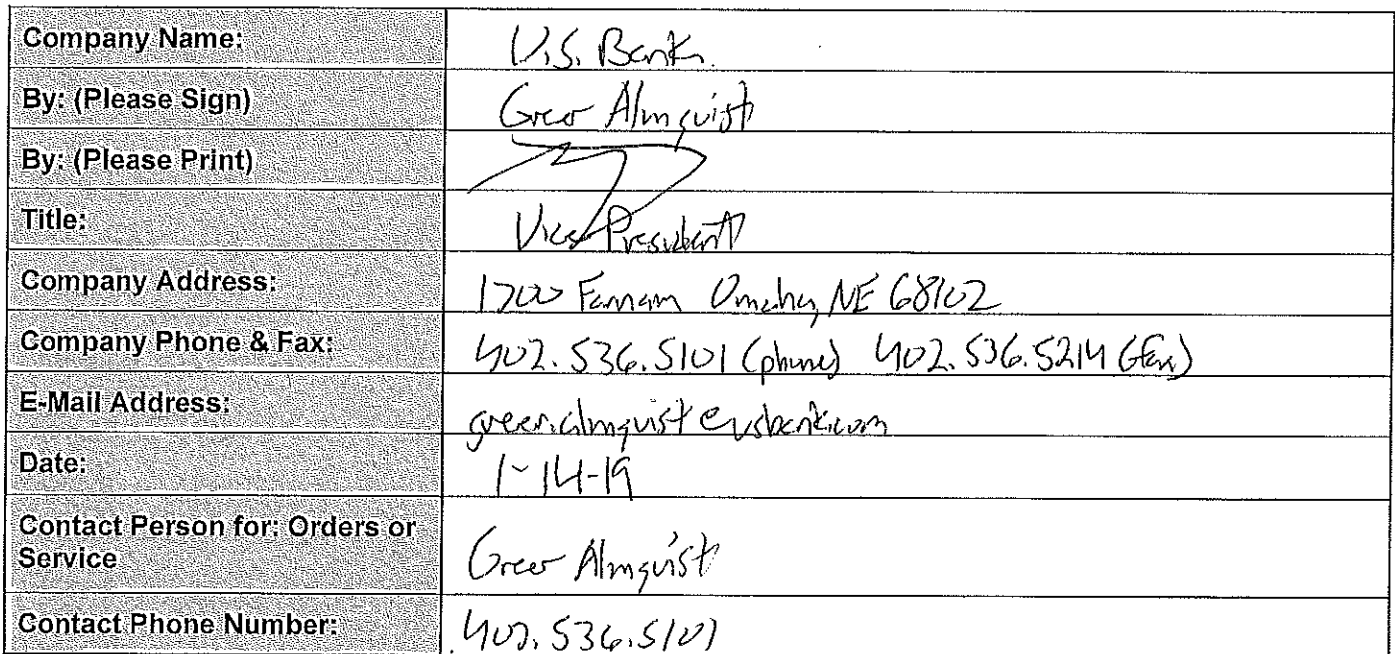 Company Name: U.S. Bank
By: (Please Sign) Greer Almquist
By: (Please Print)
Title: Vice President
Company Address: 1700 Farnam Omaha, NE 68102
Company Phone & Fax: 402.536.5101 (phone) 402.536.5214 (fax)
E-Mail Address: greer.almquist@usbank.com
Date: 1-14-19
Contact Person for: Orders or
Service Greer Almquist
Contact Phone Number: 402.536.5101